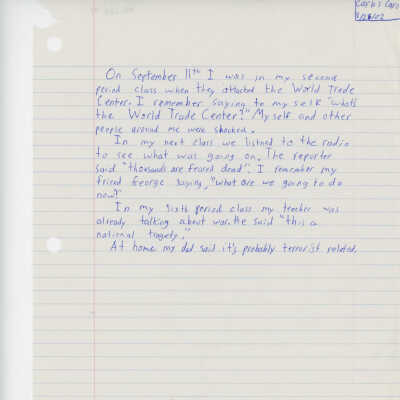 Carlos Caro
On September 11th I was in my second
period class when they attacked the World Trade
Center. I remember saying to my self "what's
the World Trade Center?" My self and other
people around me were shocked.
In my next class we listned to the radio
to see what was going on. The reporter
said "thousands are feared dead". I remember my
friend George saying, "what are we going to do
now?"
In my sixth period class my teacher was
already talking about war. He said "this is a
national tragety."
At home my dad said it's probably terrorist related.